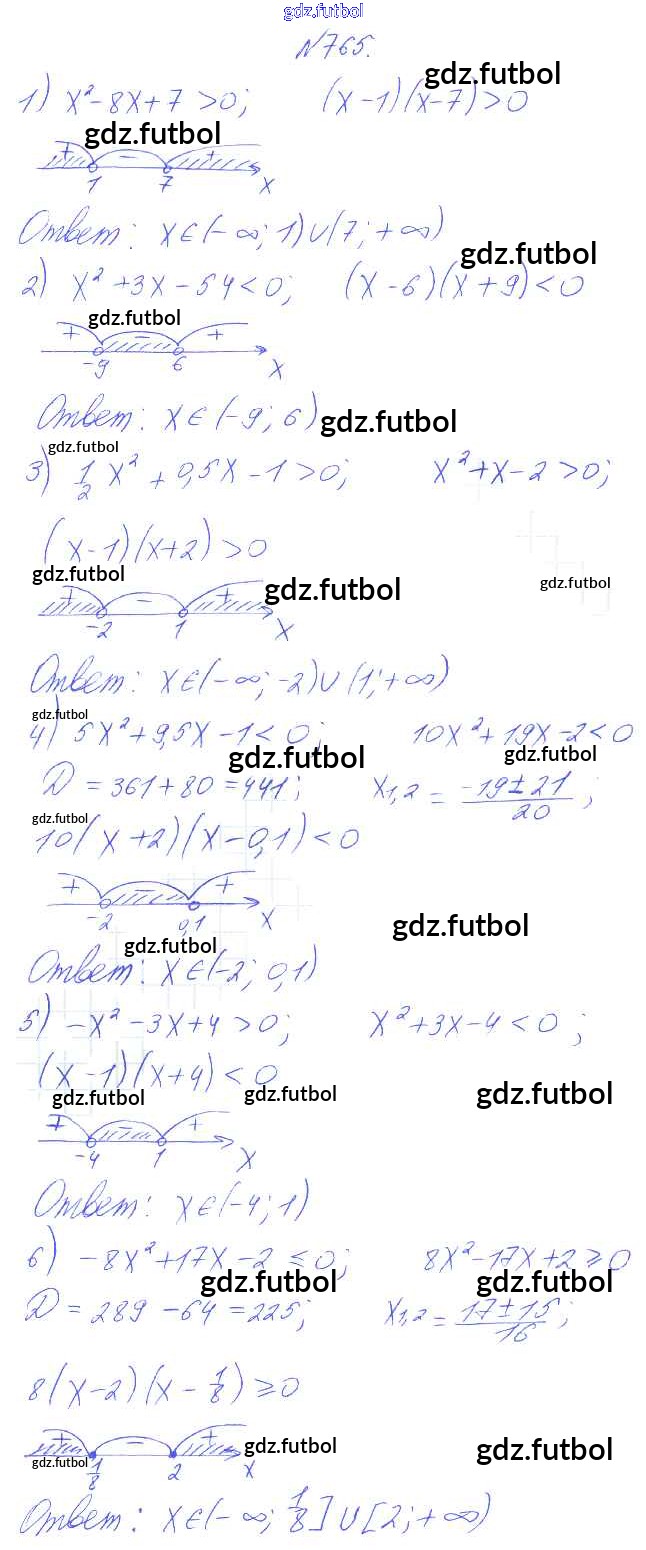 gdz.futbol
№765.
gdz.futbol
1) x² - 8x + 7 > 0; (x - 1)(x - 7) > 0
gdz.futbol
+ - +
1 7 x
Ответ: x ∈ (-∞; 1) ∪ (7; +∞)
gdz.futbol
2) x² + 3x - 54 < 0; (x - 6)(x + 9) < 0
gdz.futbol
+ - +
-9 6 x
Ответ: x ∈ (-9; 6)
gdz.futbol
gdz.futbol
3) 1/2 x² + 0,5x - 1 > 0; x² + x - 2 > 0;
(x - 1)(x + 2) > 0
gdz.futbol
gdz.futbol
gdz.futbol
+ - +
-2 1 x
Ответ: x ∈ (-∞; -2) ∪ (1; +∞)
gdz.futbol
4) 5x² + 9,5x - 1 < 0; 10x² + 19x - 2 < 0
gdz.futbol
gdz.futbol
D = 361 + 80 = 441; x₁,₂ = (-19 ± 21)/20;
gdz.futbol
10(x + 2)(x - 0,1) < 0
+ - +
-2 0,1 x
gdz.futbol
gdz.futbol
Ответ: x ∈ (-2; 0,1)
5) -x² - 3x + 4 > 0; x² + 3x - 4 < 0;
(x - 1)(x + 4) < 0
gdz.futbol
gdz.futbol
gdz.futbol
+ - +
-4 1 x
Ответ: x ∈ (-4; 1)
6) -8x² + 17x - 2 ≤ 0; 8x² - 17x + 2 ≥ 0
gdz.futbol
gdz.futbol
D = 289 - 64 = 225; x₁,₂ = (17 ± 15)/16;
8(x - 2)(x - 1/8) ≥ 0
+ - +
gdz.futbol
gdz.futbol
gdz.futbol
1/8 2 x
Ответ: x ∈ (-∞; 1/8] ∪ [2; +∞)